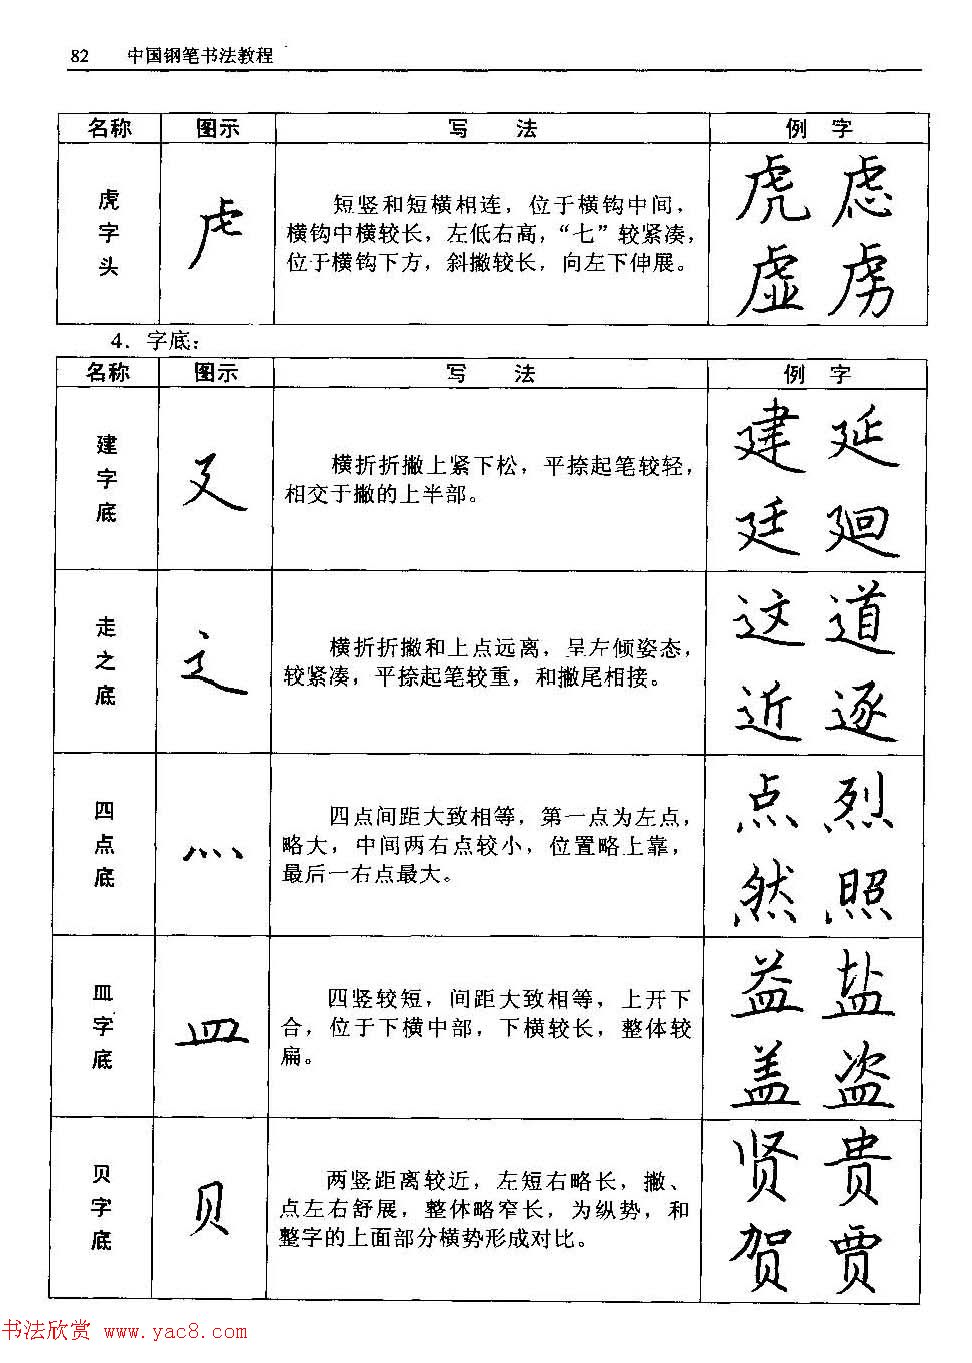 82 中国钢笔书法教程
名称 图示 写 法 例 字
虎字头 虍 短竖和短横相连，位于横钩中间，横钩中横较长，左低右高，“七”较紧凑，位于横钩下方，斜撇较长，向左下伸展。 虎 虑 虚 虏
4．字底：
名称 图示 写 法 例 字
建字底 廴 横折折撇上紧下松，平捺起笔较轻，相交于撇的上半部。 建 延 廷 廻
走之底 辶 横折折撇和上点远离，呈左倾姿态，较紧凑，平捺起笔较重，和撇尾相接。 这 道 近 逐
四点底 灬 四点间距大致相等，第一点为左点，略大，中间两右点较小，位置略上靠，最后一右点最大。 点 烈 然 照
皿字底 皿 四竖较短，间距大致相等，上开下合，位于下横中部，下横较长，整体较扁。 益 盐 盖 盗
贝字底 贝 两竖距离较近，左短右略长，撇、点左右舒展，整休略窄长，为纵势，和整字的上面部分横势形成对比。 贤 贵 贺 贾
书法欣赏 www.yac8.com